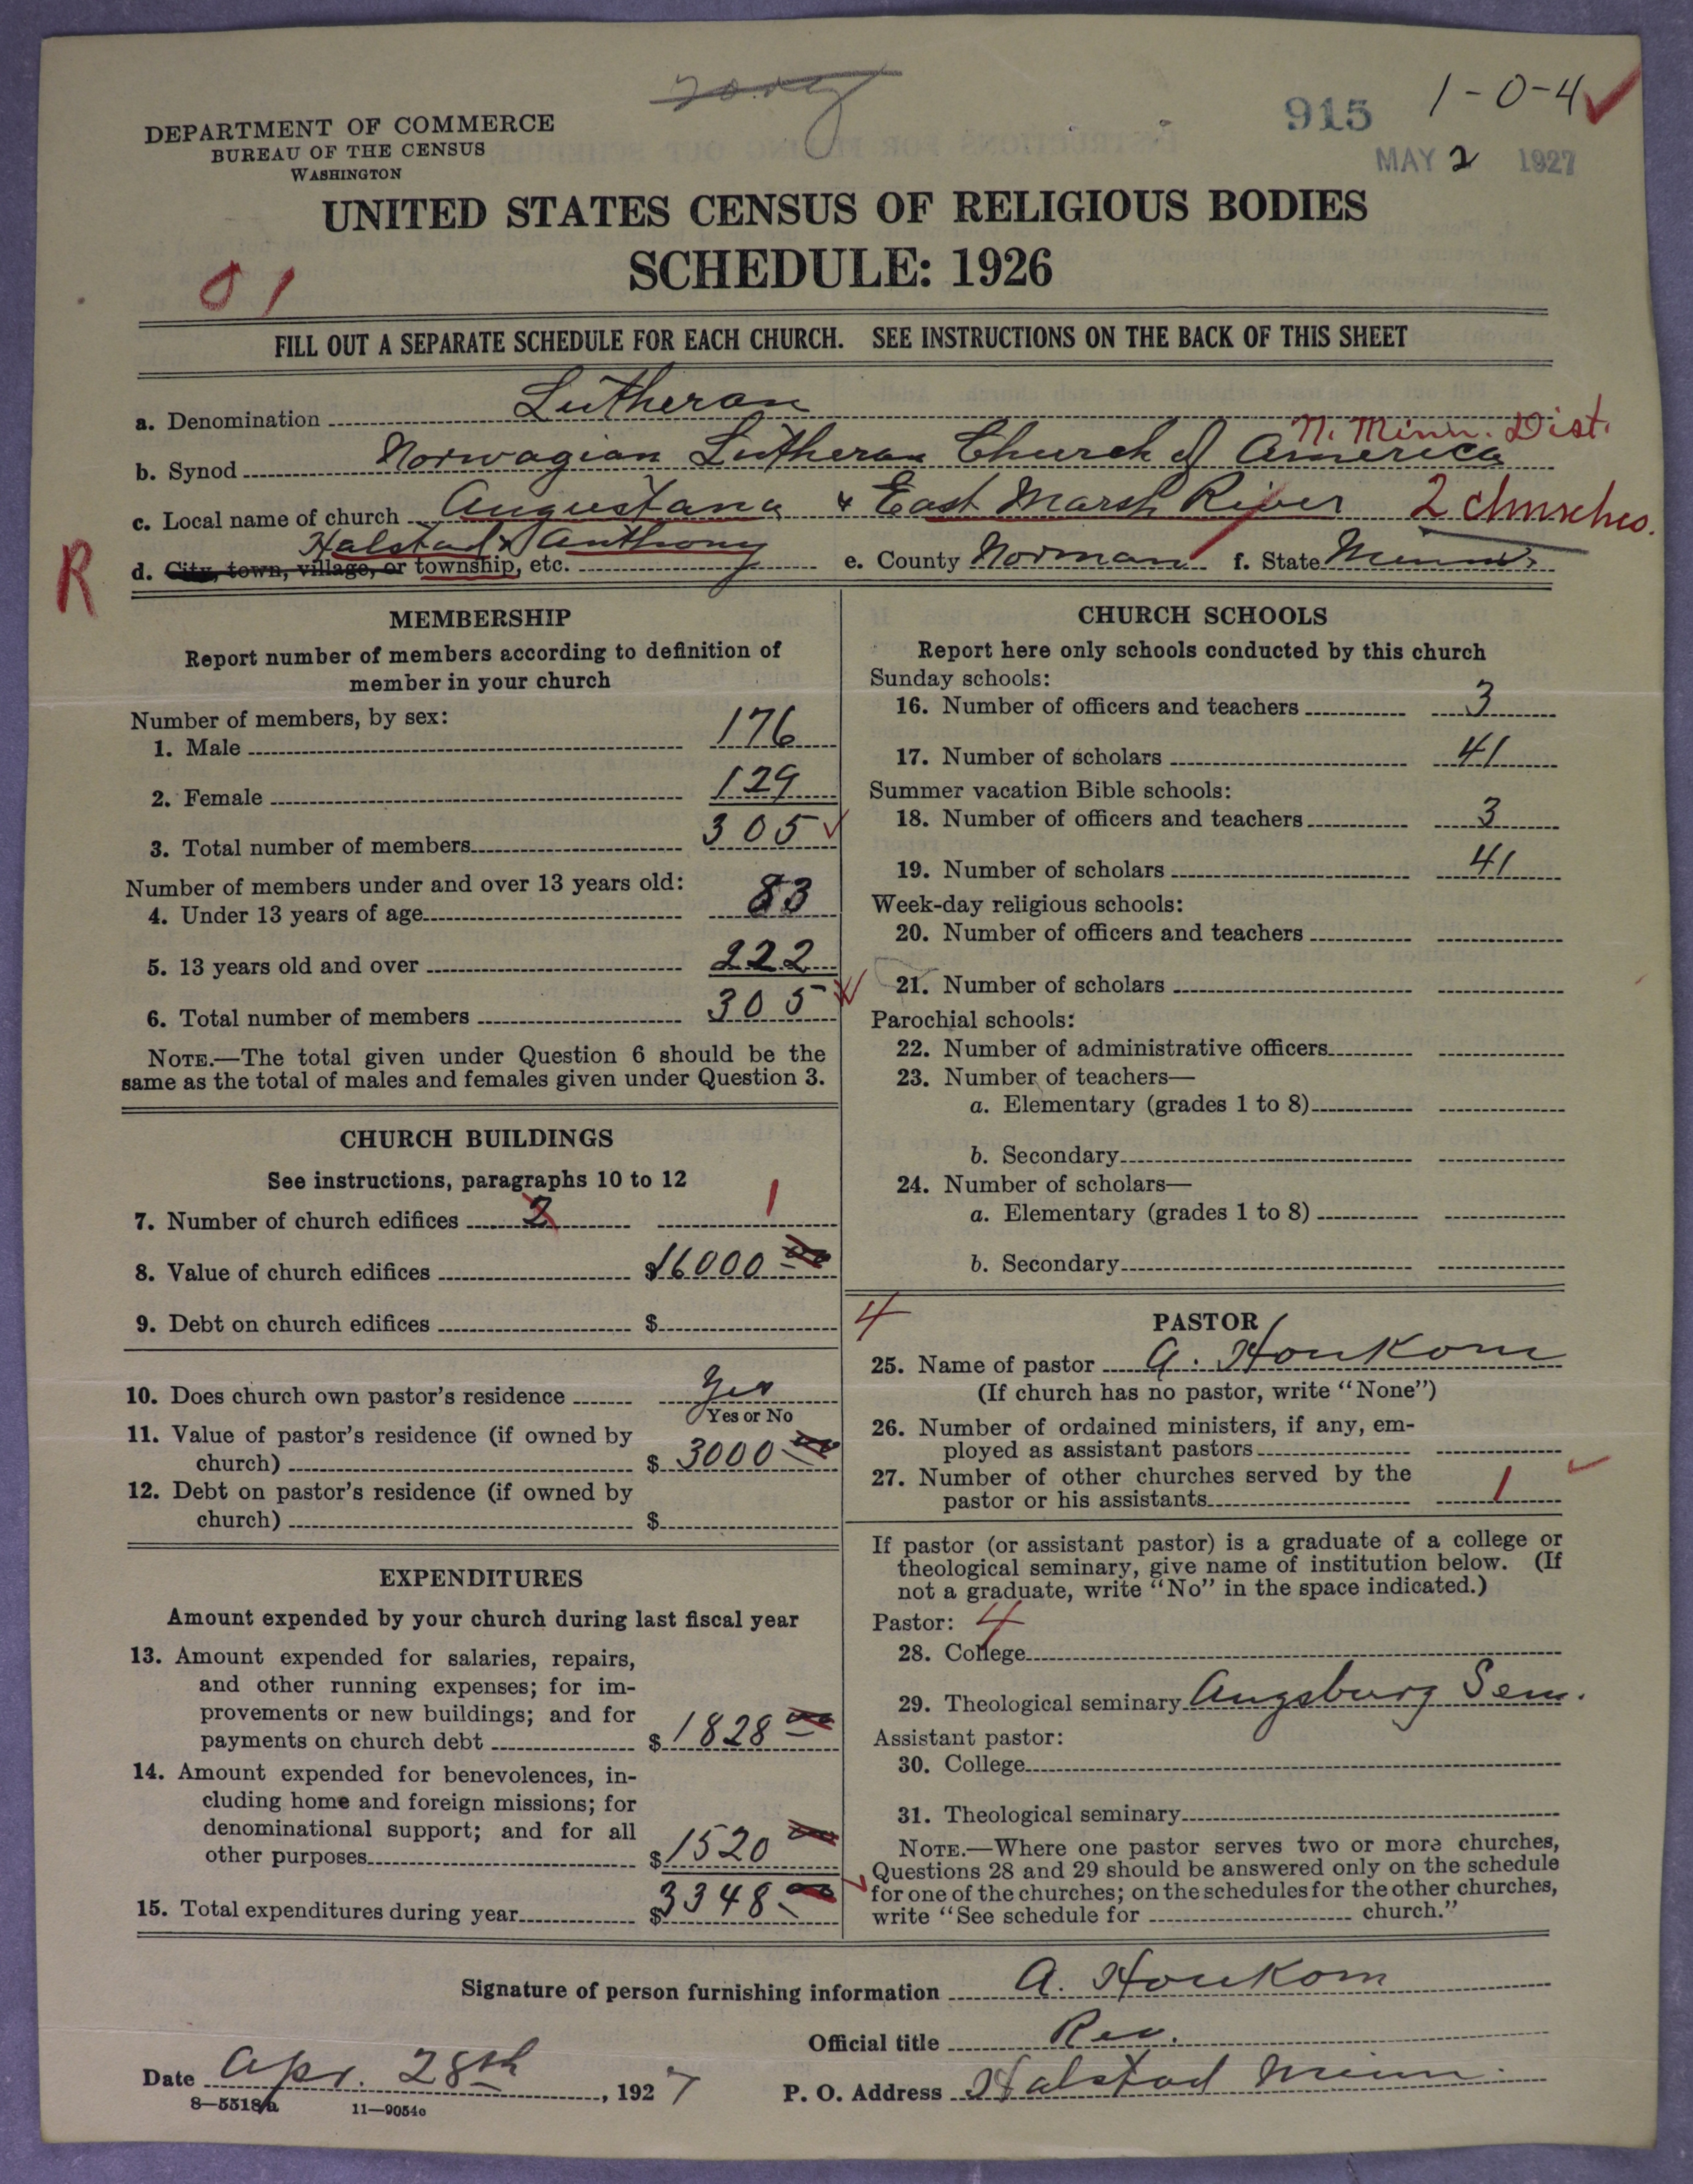 915 1-0-4
MAY 2 1927
DEPARTMENT OF COMMERCE
BUREAU OF THE CENSUS
WASHINGTON
UNITED STATES CENSUS OF RELIGIOUS BODIES
SCHEDULE: 1926
01
FILL OUT A SEPARATE SCHEDULE FOR EACH CHURCH. SEE INSTRUCTIONS ON THE BACK OF THIS SHEET
a. Denomination Lutheran
N. Minn. Dist.
b. Synod Norwagian Lutheran Church of America
c. Local name of church Augustana & East Marsh River 2 churches.
R
d. City, town, village, or township, etc. Halstad & Anthony e. County Norman f. State Minn.
MEMBERSHIP
Report number of members according to definition of
member in your church
Number of members, by sex:
1. Male 176
2. Female 129
3. Total number of members 305
Number of members under and over 13 years old:
4. Under 13 years of age 83
5. 13 years old and over 222
6. Total number of members 305
NOTE.—The total given under Question 6 should be the
same as the total of males and females given under Question 3.
CHURCH BUILDINGS
See instructions, paragraphs 10 to 12
7. Number of church edifices 2 1
8. Value of church edifices $16000 00
9. Debt on church edifices $
10. Does church own pastor's residence Yes
Yes or No
11. Value of pastor's residence (if owned by
church) $ 3000 00
12. Debt on pastor's residence (if owned by
church) $
EXPENDITURES
Amount expended by your church during last fiscal year
13. Amount expended for salaries, repairs,
and other running expenses; for im-
provements or new buildings; and for
payments on church debt $ 1828 00
14. Amount expended for benevolences, in-
cluding home and foreign missions; for
denominational support; and for all
other purposes $ 1520 00
15. Total expenditures during year $3348.00
CHURCH SCHOOLS
Report here only schools conducted by this church
Sunday schools:
16. Number of officers and teachers 3
17. Number of scholars 41
Summer vacation Bible schools:
18. Number of officers and teachers 3
19. Number of scholars 41
Week-day religious schools:
20. Number of officers and teachers
21. Number of scholars
Parochial schools:
22. Number of administrative officers
23. Number of teachers—
a. Elementary (grades 1 to 8)
b. Secondary
24. Number of scholars—
a. Elementary (grades 1 to 8)
b. Secondary
4
PASTOR
25. Name of pastor A. Houkom
(If church has no pastor, write "None")
26. Number of ordained ministers, if any, em-
ployed as assistant pastors
27. Number of other churches served by the
pastor or his assistants 1
If pastor (or assistant pastor) is a graduate of a college or
theological seminary, give name of institution below. (If
not a graduate, write "No" in the space indicated.)
Pastor: 4
28. College
29. Theological seminary Augsburg Sem.
Assistant pastor:
30. College
31. Theological seminary
NOTE.—Where one pastor serves two or more churches,
Questions 28 and 29 should be answered only on the schedule
for one of the churches; on the schedules for the other churches,
write "See schedule for church."
Signature of person furnishing information A. Houkom
Official title Rev.
Date Apr. 28th, 1927 P. O. Address Halstad Minn.
8—5518a 11—9054c